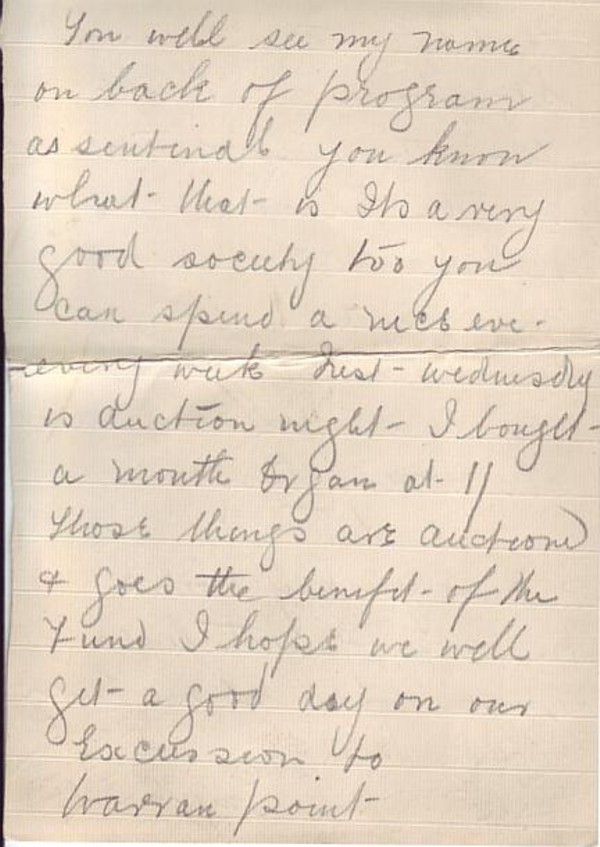 You will see my name
on back of program
as sentinal you know
what - that - is Its a very
good society too you
can spend a nice eve-
evening week - wednesday
is auction night - I bought -
a mouth organ at 1/
those things are auctioned
& goes the benifit - of the
Fund I hope we will
get - a good day on our
Excussion to
Warran point